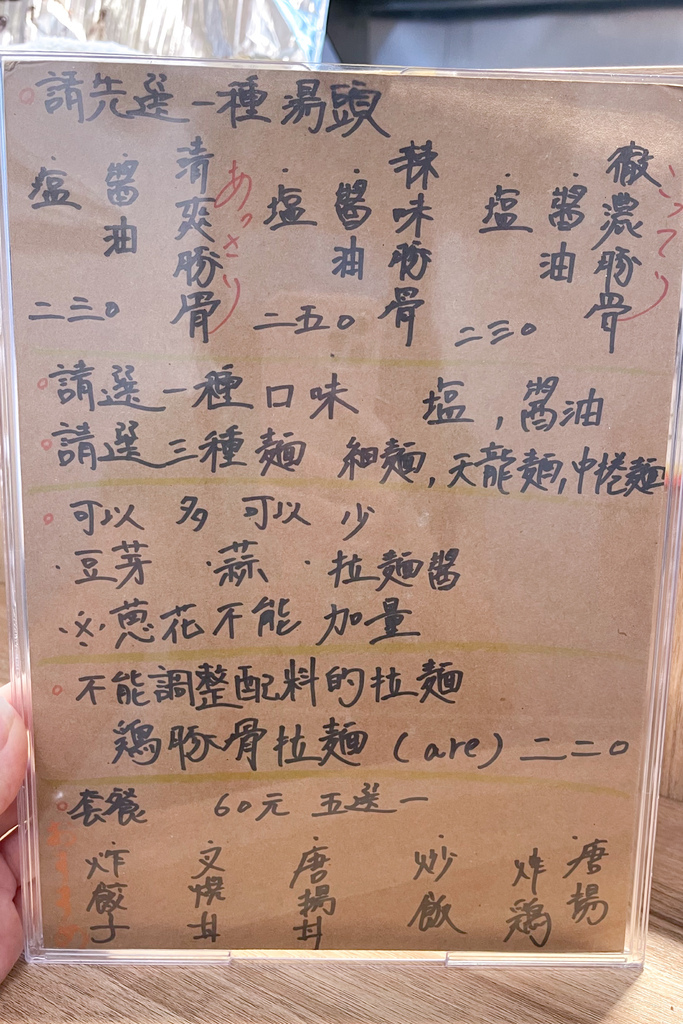 請先選一種湯頭
徹濃豚骨
こってり
醬油
塩
二三〇
辣味豚骨
醬油
塩
二五〇
清爽豚骨
あっさり
醬油
塩
二三〇
請選一種口味 塩,醬油
請選三種麵 細麵,天龍麵,中捲麵
可以多可以少
·豆芽 ·蒜 ·拉麵醬
※蔥花不能加量
不能調整配料的拉麵
鶏豚骨拉麵(are)二二〇
套餐 60元 五選一
おすすめ
·唐揚炸鶏
·炒飯
·唐揚丼
·叉燒丼
·炸餃子